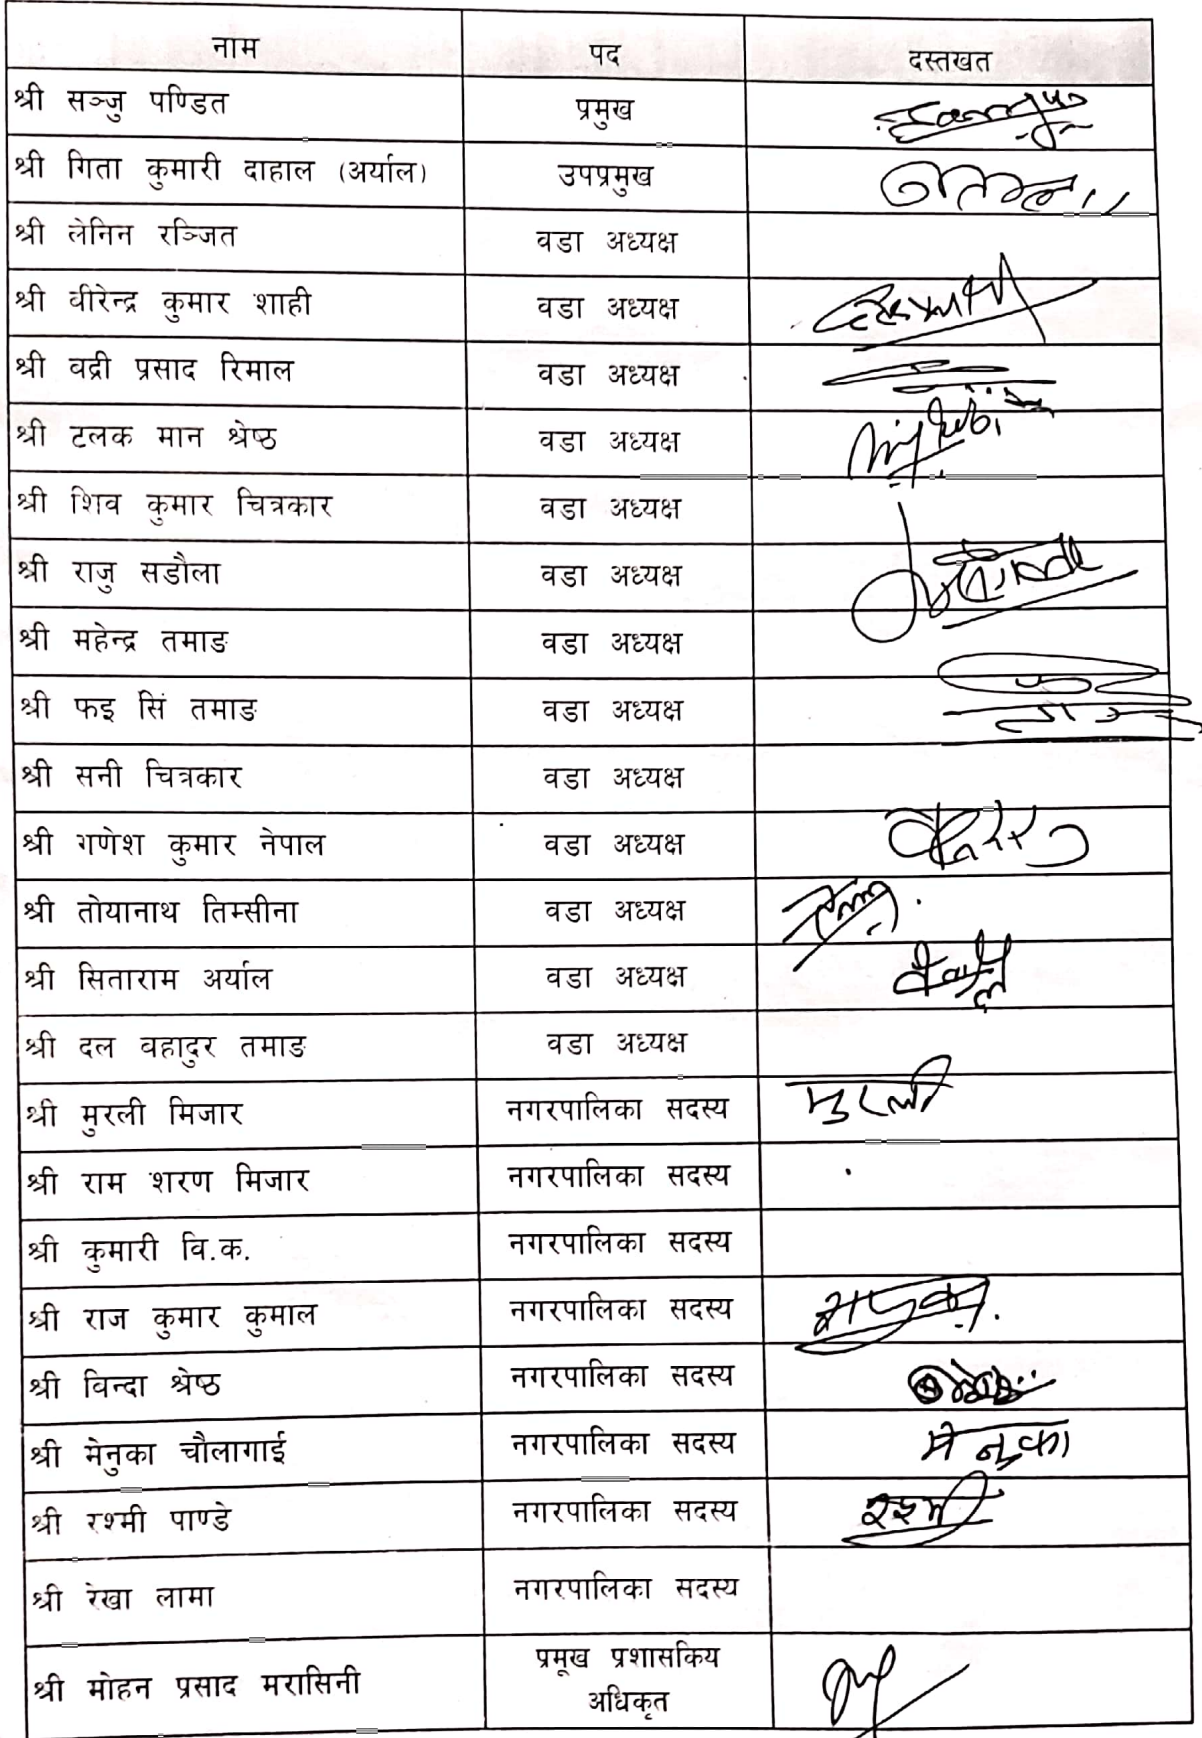 नाम पद दस्तखत
श्री सञ्जु पण्डित प्रमुख
श्री गिता कुमारी दाहाल (अर्याल) उपप्रमुख
श्री लेनिन रञ्जित वडा अध्यक्ष
श्री वीरेन्द्र कुमार शाही वडा अध्यक्ष
श्री वद्री प्रसाद रिमाल वडा अध्यक्ष
श्री टलक मान श्रेष्ठ वडा अध्यक्ष
श्री शिव कुमार चित्रकार वडा अध्यक्ष
श्री राजु सडौला वडा अध्यक्ष
श्री महेन्द्र तमाङ वडा अध्यक्ष
श्री फइ सिं तमाङ वडा अध्यक्ष
श्री सनी चित्रकार वडा अध्यक्ष
श्री गणेश कुमार नेपाल वडा अध्यक्ष
श्री तोयानाथ तिम्सीना वडा अध्यक्ष
श्री सिताराम अर्याल वडा अध्यक्ष
श्री दल वहादुर तमाङ वडा अध्यक्ष
श्री मुरली मिजार नगरपालिका सदस्य मुरली
श्री राम शरण मिजार नगरपालिका सदस्य
श्री कुमारी वि.क. नगरपालिका सदस्य
श्री राज कुमार कुमाल नगरपालिका सदस्य
श्री विन्दा श्रेष्ठ नगरपालिका सदस्य
श्री मेनुका चौलागाई नगरपालिका सदस्य मेनुका
श्री रश्मी पाण्डे नगरपालिका सदस्य रश्मी
श्री रेखा लामा नगरपालिका सदस्य
श्री मोहन प्रसाद मरासिनी प्रमूख प्रशासकिय
अधिकृत